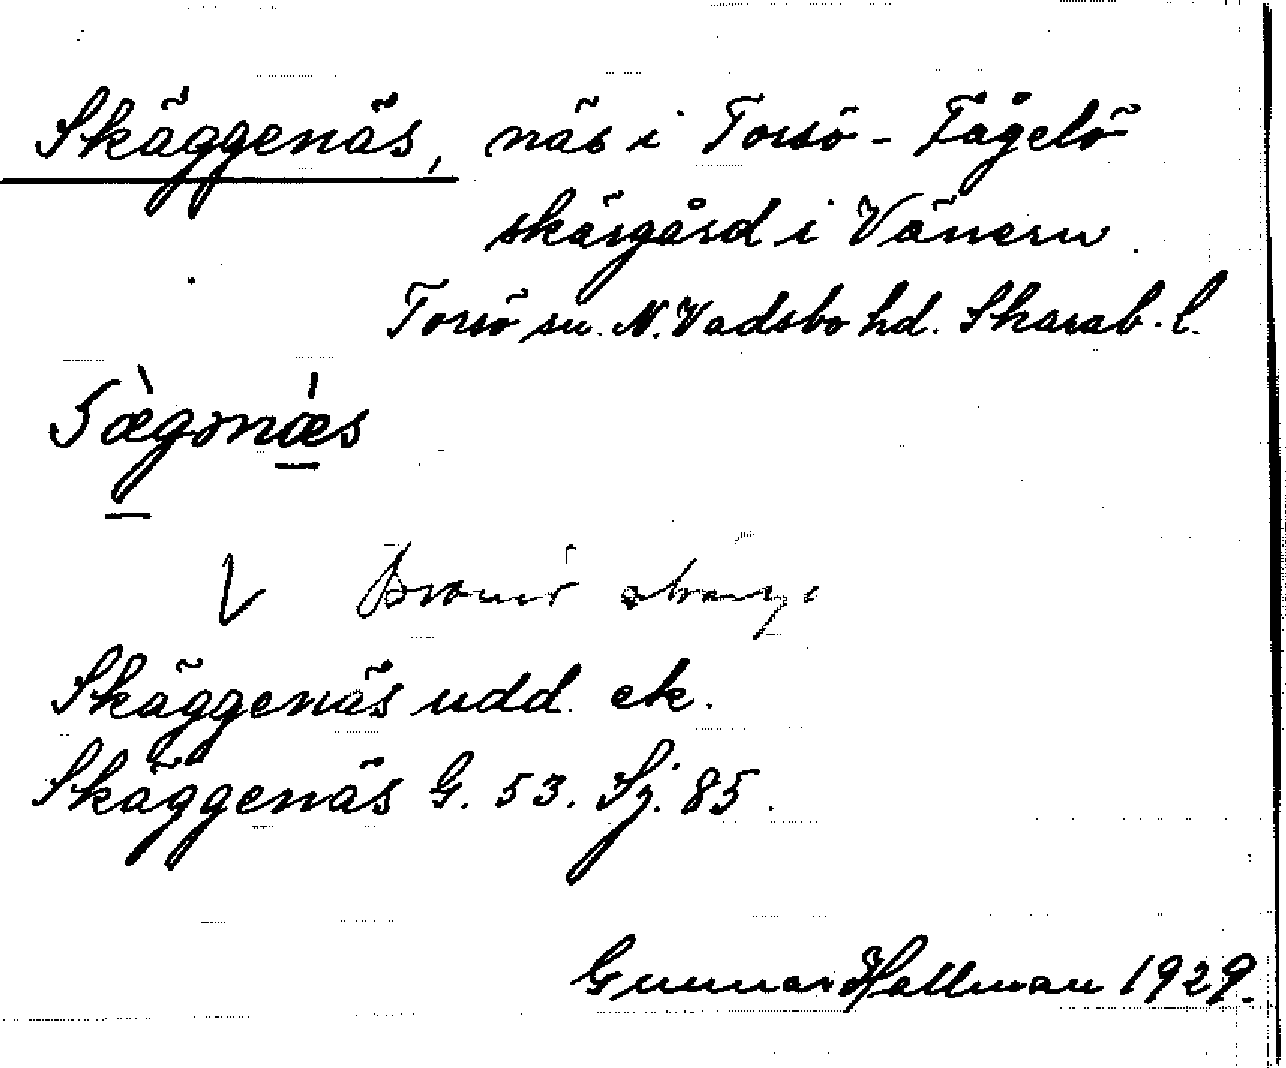 Skäggenäs, näs i Torsö - Fågelö
skärgård i Vänern.
Torsö sn. N. Vadsbo hd. Skarab. l.
Skäggenäs udd. ek.
Skäggenäs G. 53. Sj. 85.
Gunnar Hallman 1929.